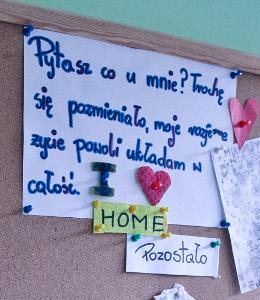 Pytasz co u mnie? Trochę
się pozmieniało, moje rozjebane
życie powoli układam w
całość.
I
HOME
Pozostało